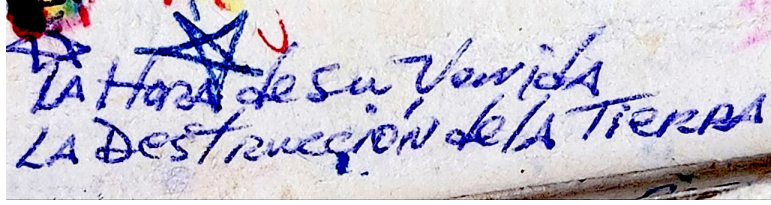 LA HORA de su Venida
LA DESTRucción de lA TIERRA